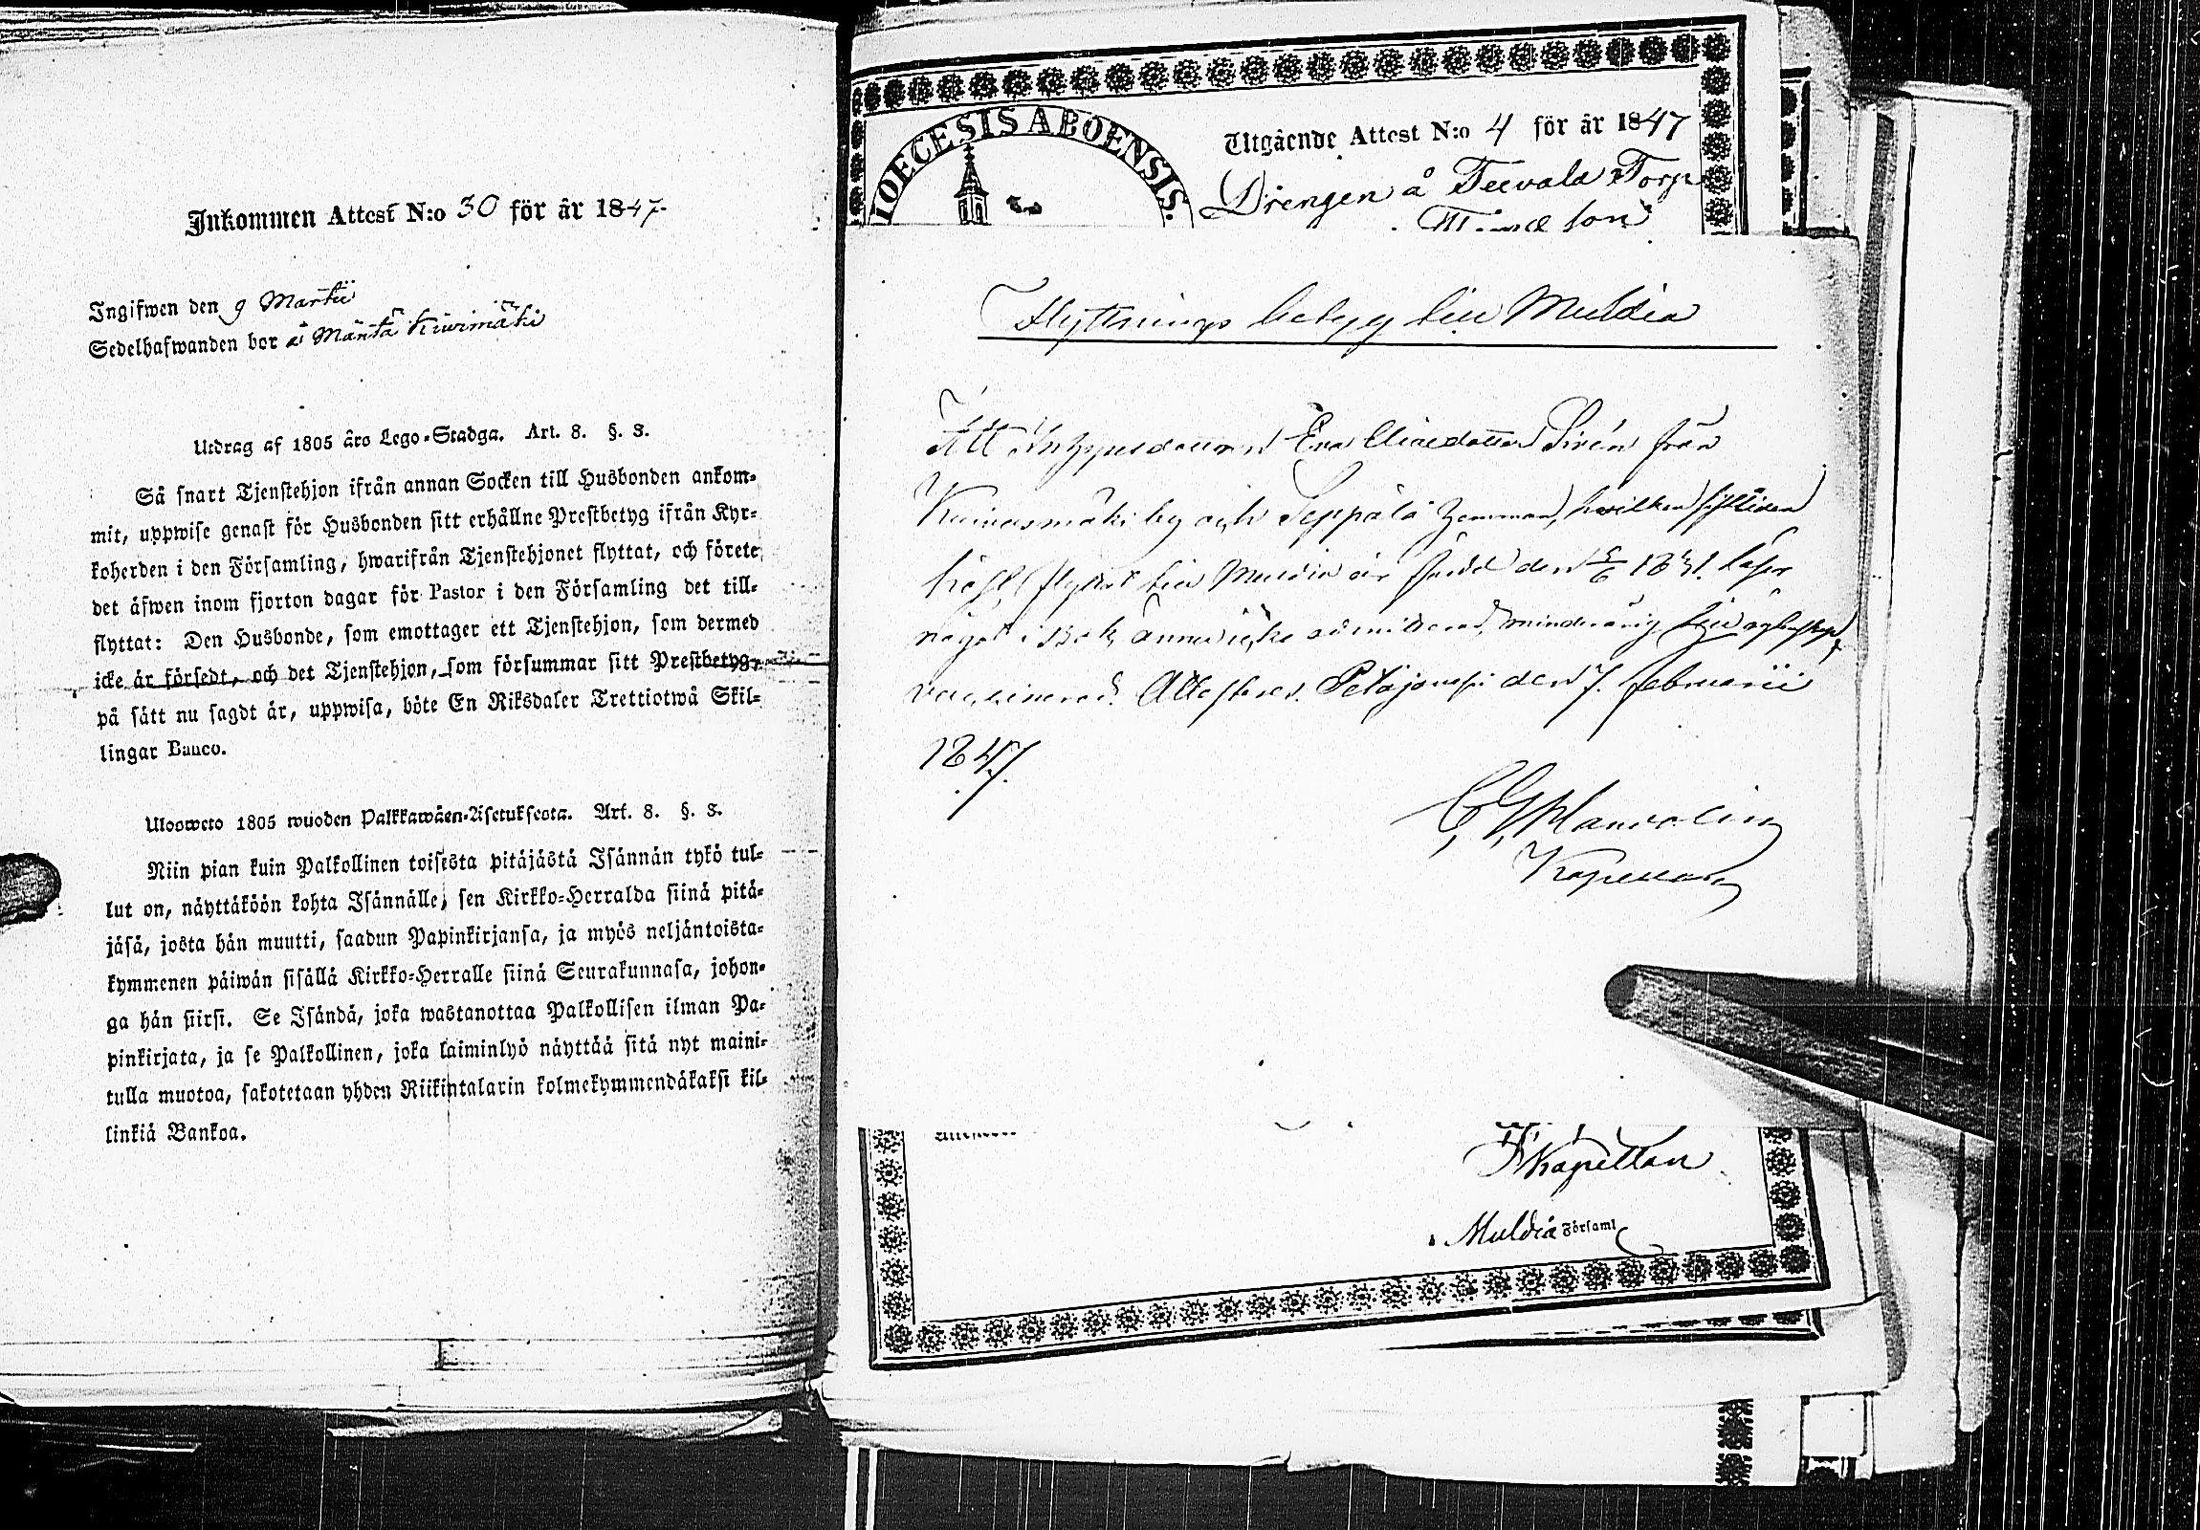 Inkommen Attest N:o 30 för år 1847.
Ingifwen den 9 Martii
Sedelhafwanden bor å Mäntä Kiwimäki
Utdrag af 1805 års Lego-Stadga. Art. 8. §. 3.
Så snart Tjenstehjon ifrån annan Socken till Husbonden ankom-
mit, uppwise genast för Husbonden sitt erhållne Prestbetyg ifrån Kyr-
koherden i den Församling, hwarifrån Tjenstehjonet flyttat, och förete
det äfwen inom fjorton dagar för Pastor i den Församling det till-
flyttat: Den Husbonde, som emottager ett Tjenstehjon, som dermed
icke är försedt, och det Tjenstehjon, som försummar sitt Prestbetyg,
på sätt nu sagdt är, uppwisa, böte En Riksdaler Trettiotwå Skil-
lingar Banco.
Ulosweto 1805 wuoden Palkkawäen-Asetuksesta. Art. 8. §. 3.
Niin pian kuin Palkollinen toisesta pitäjästä Isännän tykö tul-
lut on, näyttäköön kohta Isännälle, sen Kirkko-Herralda siinä pitä-
jäsä, josta hän muutti, saadun Papinkirjansa, ja myös neljäntoista-
kymmenen päiwän sisällä Kirkko-Herralle siinä Seurakunnasa, johon-
ga hän siirsi. Se Isändä, joka wastanottaa Palkollisen ilman Pa-
pinkirjata, ja se Palkollinen, joka laiminlyö näyttää sitä nyt maini-
tulla muotoa, sakotetaan yhden Riikintalarin kolmekymmendäkaksi kil-
linkiä Bankoa.
IOECESIS ABOENSIS.
Utgående Attest N:o 4 för år 1847
Drengen å Teevala Torp
son
Flyttnings betyg till Muldia
Att Eva Eliaedotter Sirén från
by och Seppälä hemman, hvilken
flyttat till Muldia är född den 1831. läser
i Bok, admitterad, minderårig till
vaccinerad. Attesteras. Petäjävesi den 7. Februarii
1847.
Kapellan
Kapellan
Muldia Församl